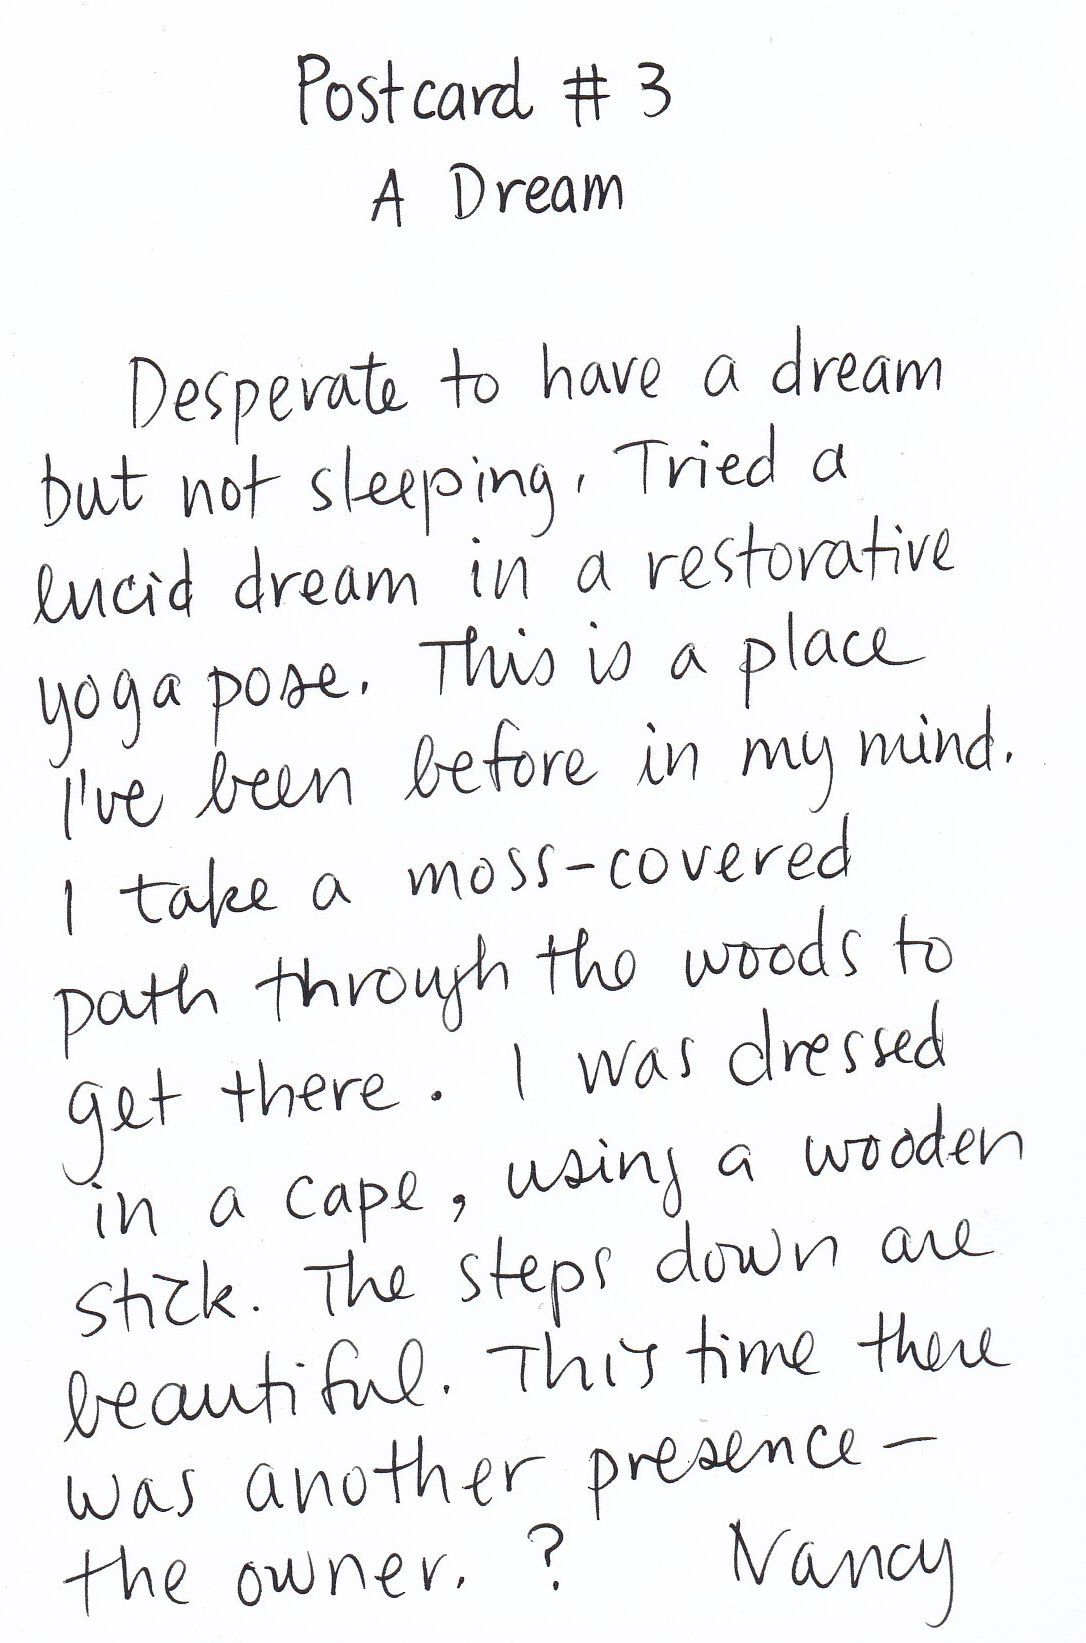 Postcard # 3
A Dream
Desperate to have a dream
but not sleeping. Tried a
lucid dream in a restorative
yoga pose. This is a place
I've been before in my mind.
I take a moss-covered
path through the woods to
get there. I was dressed
in a cape, using a wooden
stick. The steps down are
beautiful. This time there
was another presence -
the owner. ? Nancy